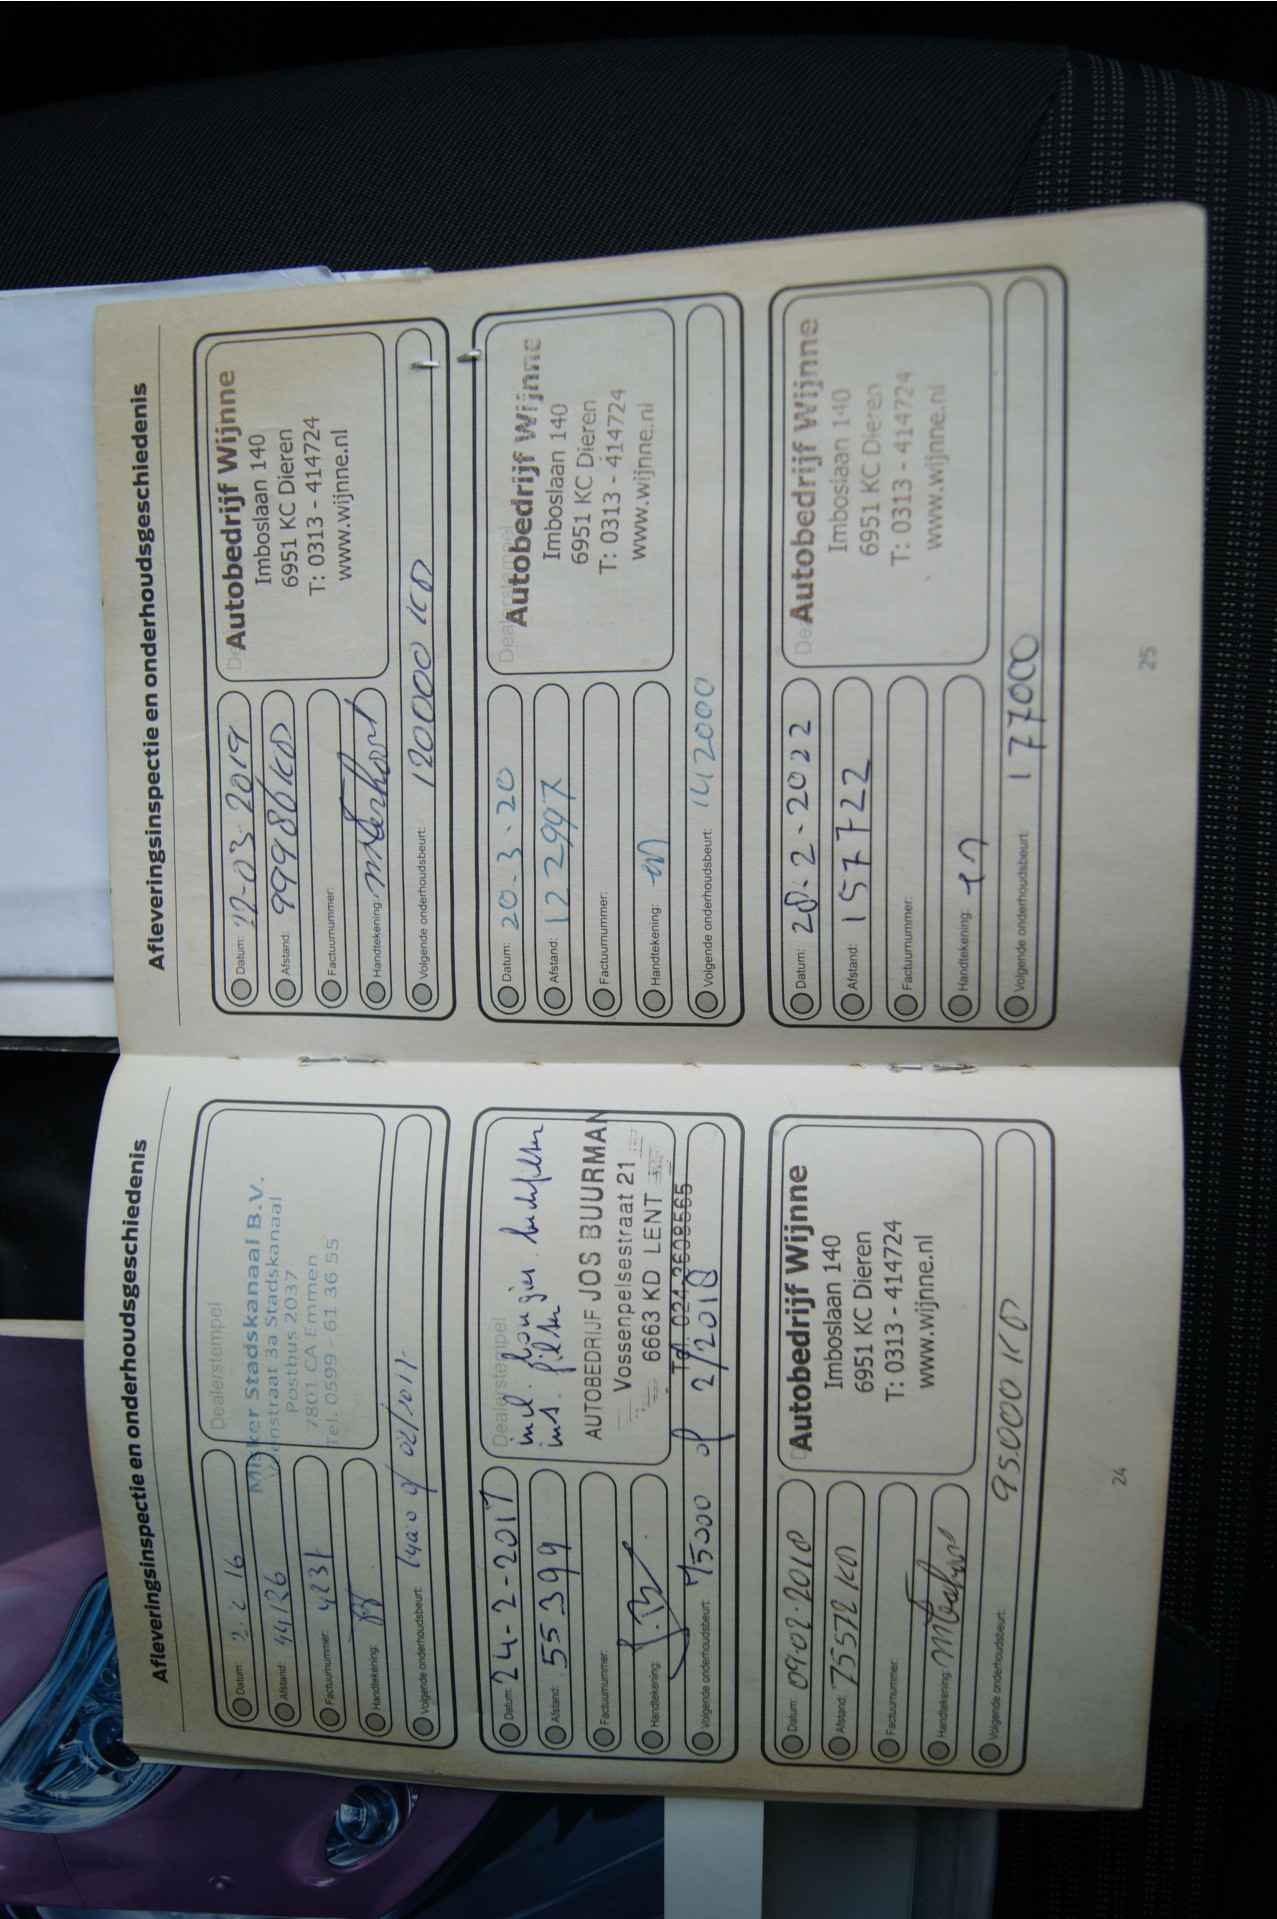 Afleveringsinspectie en onderhoudsgeschiedenis
Datum: 2. 2 16
Afstand: 44126
Factuurnummer: 4231
Handtekening:
Volgende onderhoudsbeurt: of 02/2017
Dealerstempel
Misker Stadskanaal B.V.
straat 3a Stadskanaal
Postbus 2037
7801 CA Emmen
Tel. 0599 - 61 36 55
Datum: 24-2-2017
Afstand: 55399
Factuurnummer:
Handtekening:
Volgende onderhoudsbeurt: 75000 of 2/2018
Dealerstempel
incl. bougies. luchtfilter
int. filter
AUTOBEDRIJF JOS BUURMAN
Vossenpelsestraat 21
6663 KD LENT
Tel. 024-3608565
Datum: 09-02-2018
Afstand: 75572 KM
Factuurnummer:
Handtekening:
Volgende onderhoudsbeurt: 95.000 KM
Autobedrijf Wijnne
Imboslaan 140
6951 KC Dieren
T: 0313 - 414724
www.wijnne.nl
24
Afleveringsinspectie en onderhoudsgeschiedenis
Datum: 12-03-2019
Afstand: 99986 KM
Factuurnummer:
Handtekening:
Volgende onderhoudsbeurt: 120000 KM
Autobedrijf Wijnne
Imboslaan 140
6951 KC Dieren
T: 0313 - 414724
www.wijnne.nl
Datum: 20-3-20
Afstand: 122997
Factuurnummer:
Handtekening:
Volgende onderhoudsbeurt: 142000
Dealerstempel
Autobedrijf Wijnne
Imboslaan 140
6951 KC Dieren
T: 0313 - 414724
www.wijnne.nl
Datum: 28-2-2022
Afstand: 157722
Factuurnummer:
Handtekening:
Volgende onderhoudsbeurt: 177000
Autobedrijf Wijnne
Imboslaan 140
6951 KC Dieren
T: 0313 - 414724
www.wijnne.nl
25